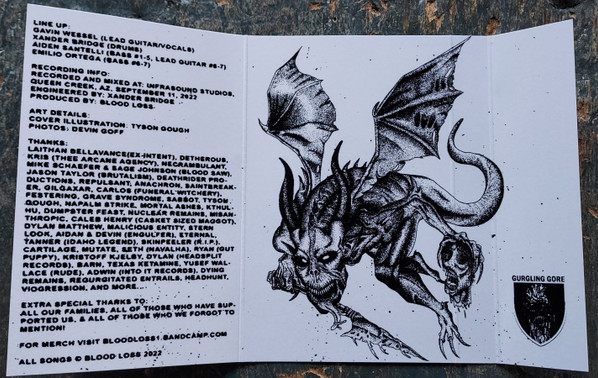 LINE UP:
GAVIN WESSEL (LEAD GUITAR/VOCALS)
XANDER BRIDGE (DRUMS)
AIDEN SANTELLI (BASS #1-5, LEAD GUITAR #6-7)
EMILIO ORTEGA (BASS #6-7)
RECORDING INFO:
RECORDED AND MIXED AT: INFRASOUND STUDIOS,
QUEEN CREEK, AZ, SEPTEMBER 11, 2022
ENGINEERED BY: XANDER BRIDGE
PRODUCED BY: BLOOD LOSS.
ART DETAILS:
COVER ILLUSTRATION: TYSON GOUGH
PHOTOS: DEVIN GOFF
THANKS:
LAITHAN BELLAVANCE(EX-INTENT), DETHEROUS,
KRIS (THEE ARCANE AGENCY), NECRAMBULANT,
MIKE SCHAEFER & SAGE JOHNSON (BLOOD SAW),
JASON TAYLOR (BRUTALISM), DEATHRIDER PRO-
DUCTIONS, REPULSANT, ANACHRON, SAINTBREAK-
ER, GILAXAR, CARLOS (FUNERAL WITCHERY),
FESTERING, GRAVE SYNDROME, SABBOT, TYSON
GOUGH, NAPALM STRIKE, MORTAL ASHES, KTHUL-
HU, DUMPSTER FEAST, NUCLEAR REMAINS, MISAN-
THROPIC, CALEB HENRY (CASKET SIZED MAGGOT),
DYLAN MATTHEW, MALICIOUS ENTITY, STERN
LOOK, AIDAN & DEVIN (ENGULFER), ETERNAL,
TANNER (IDAHO LEGEND), SKINPEELER (R.I.P.),
CARTILAGE, MUTATE, SETH (NAVALHA), RYAN (GUT
PUPPY), KRISTOFF KJELBY, DYLAN (HEADSPLIT
RECORDS), BARN, TEXAS KETAMINE, YUSEF WAL-
LACE (RUDE), ADWIN (INTO IT RECORDS), DYING
REMAINS, REGURGITATED ENTRAILS, HEADHUNT,
VIOGRESSION, AND MORE...
EXTRA SPECIAL THANKS TO:
ALL OUR FAMILIES, ALL OF THOSE WHO HAVE SUP-
PORTED US, & ALL OF THOSE WHO WE FORGOT TO
MENTION!
FOR MERCH VISIT BLOODLOSS1.BANDCAMP.COM
ALL SONGS © BLOOD LOSS 2022
GURGLING GORE